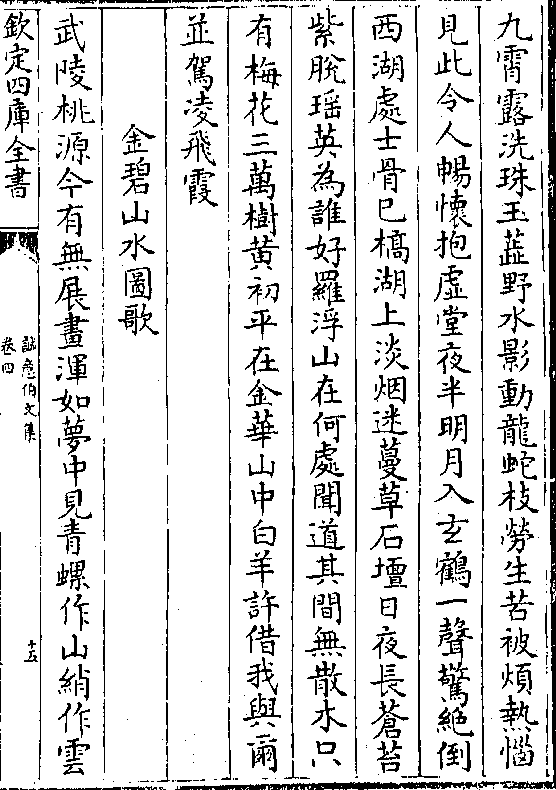 九霄露洗珠玉蕋野水影動龍蛇枝勞生苦被煩熱惱
見此令人暢懷抱虛堂夜半明月入玄鶴一聲驚絕倒
西湖處士骨已槁湖上淡烟迷蔓草石壇日夜長蒼苔
紫脫瑶英為誰好羅浮山在何處聞道其間無散木只
有梅花三萬樹黄初平在金華山中白羊許借我與爾
並駕凌飛霞
金碧山水圖歌
武陵桃源今有無展畫渾如夢中見青螺作山綃作雲
欽定四庫全書
誠意伯文集
卷四
十五